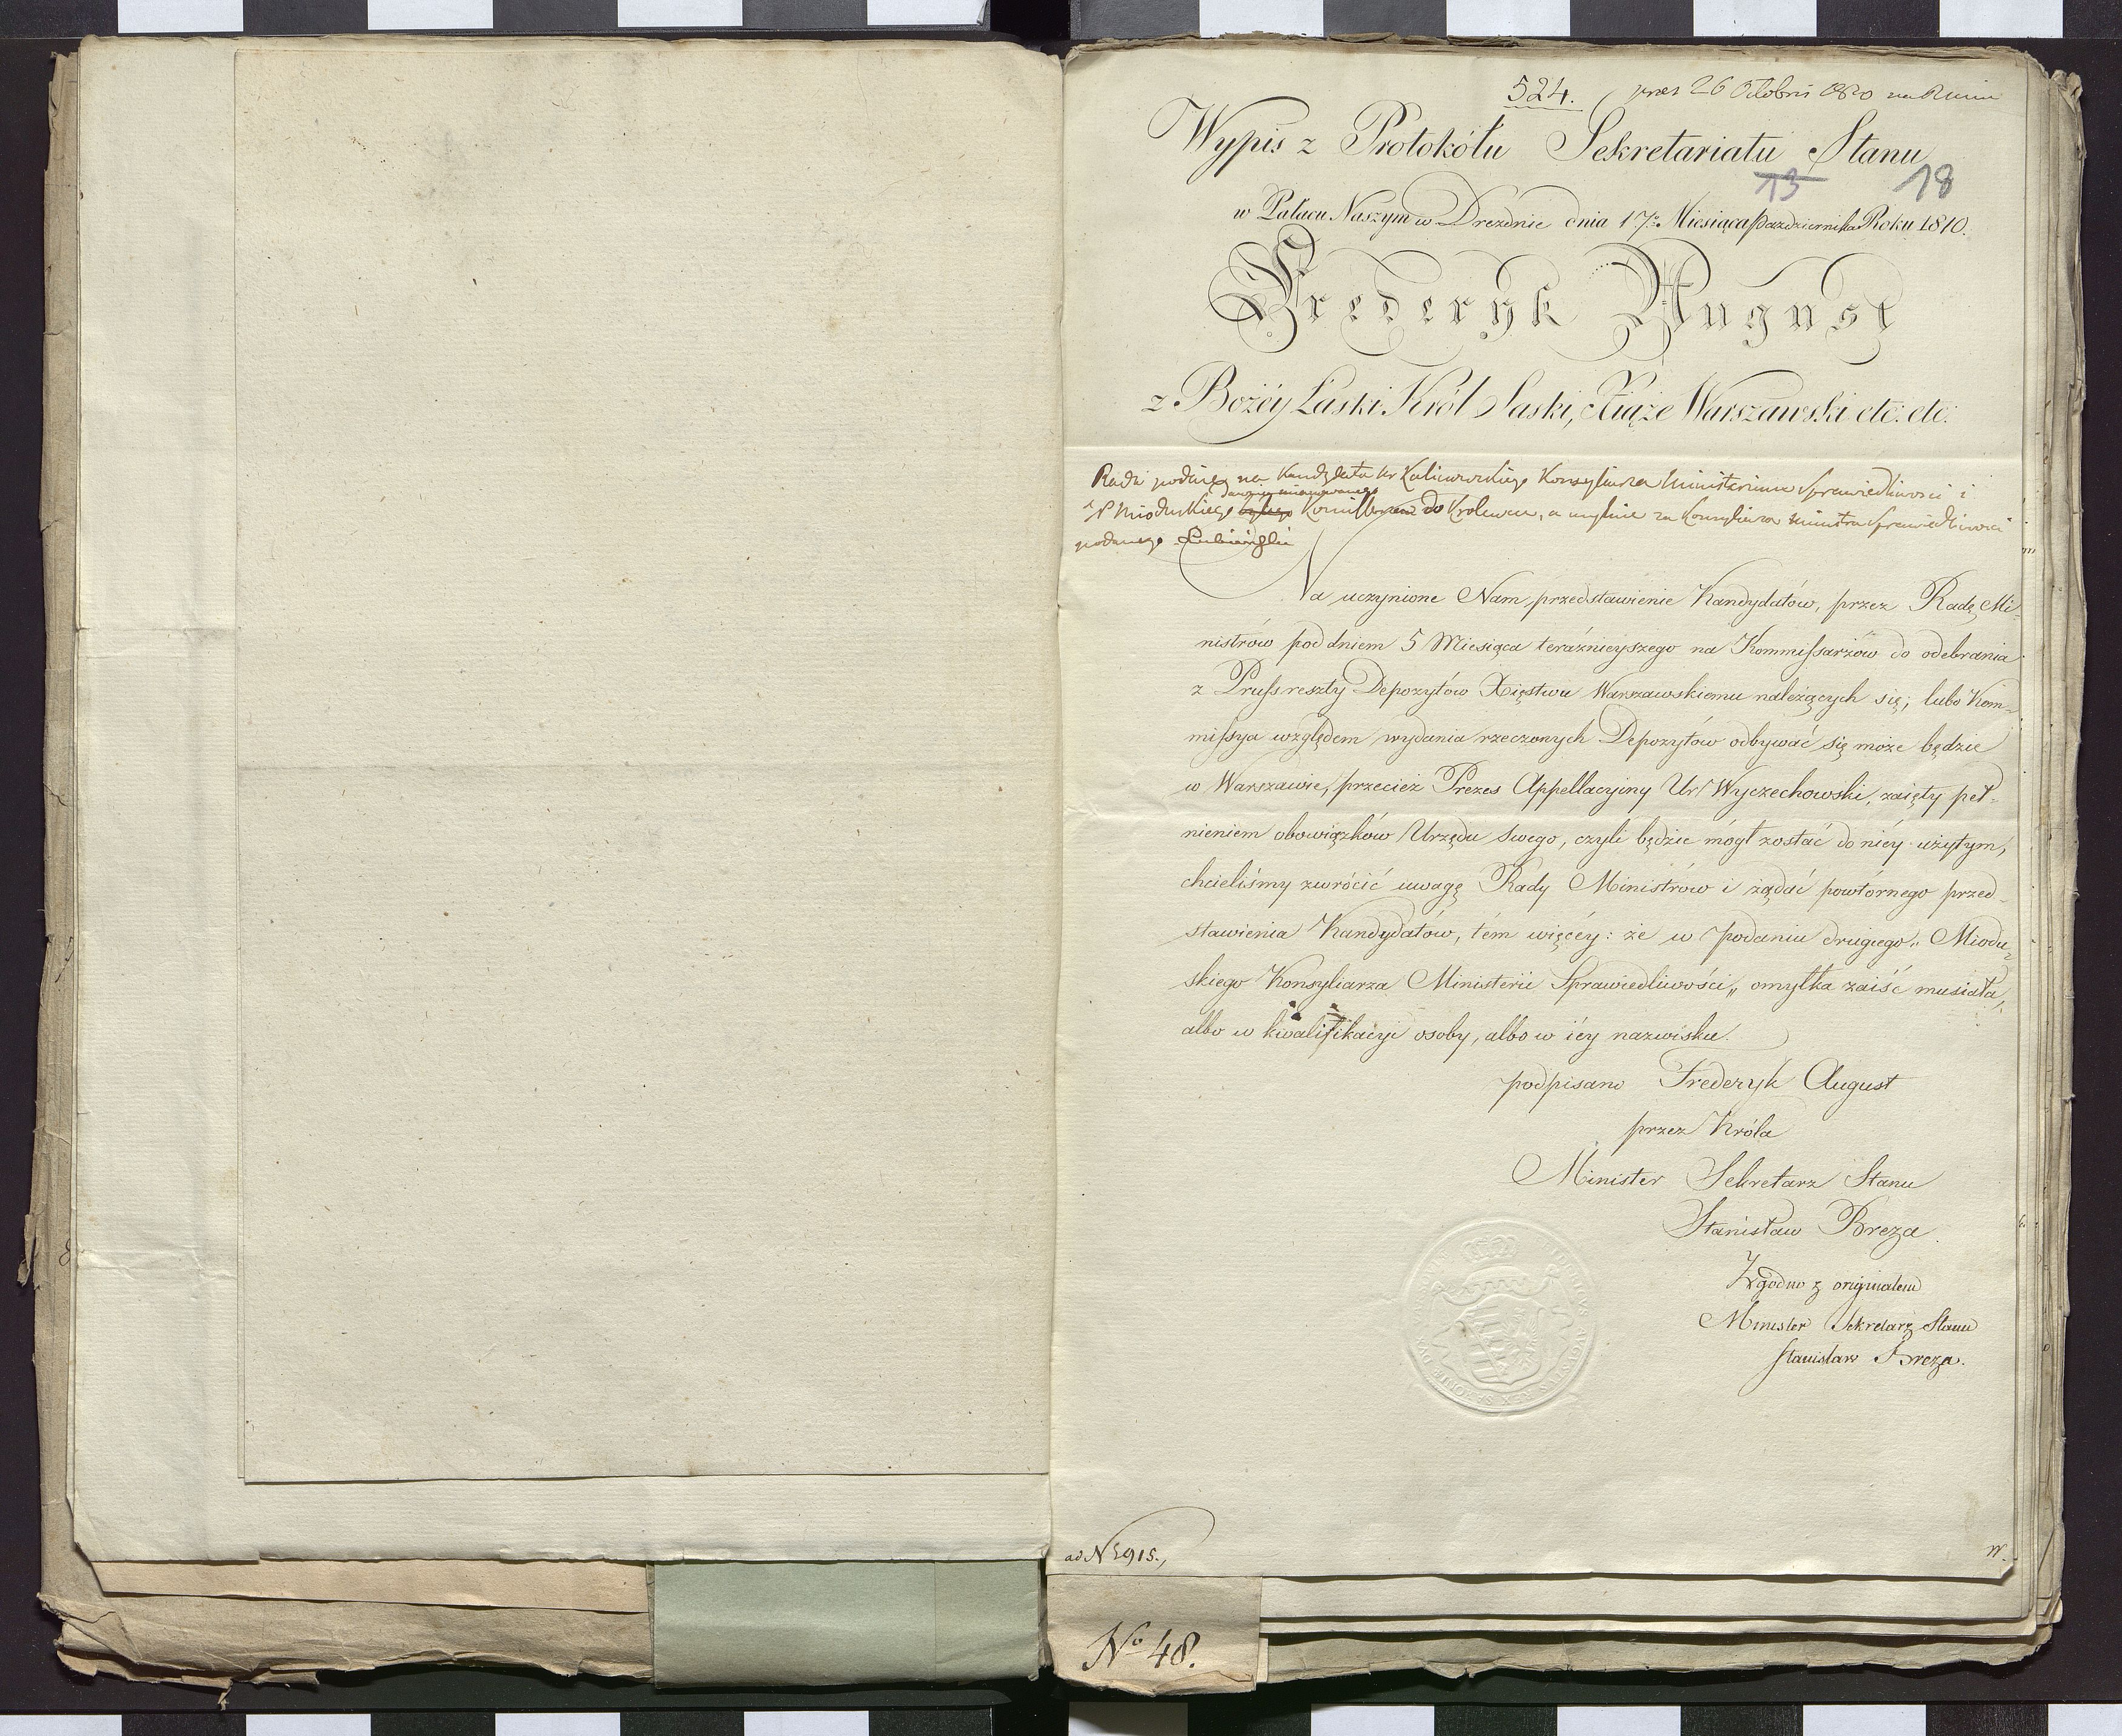 524. pres 26 Octobris 1810 na Ranie
Wypis z Protokółu Sekretariatu Stanu
13 18
w Pałacu Naszym w Dreznie dnia 17º Miesiąca Pazdziernika Roku 1810.
Frederyk August
z Bożéy Łaski Król Saski, Xiąże Warszawski etc: etc:
Rada podaie na Kandydata Ur Kalinowskiego Konsyliarza Ministerium Sprawiedliwosci i
mianowanego
Ur Mioduskiego byłego Komissarza do Krolewca, a mylnie za Konsyliarza Ministra Sprawiedliwosci
podanego
Na uczynione Nam przedstawienie Kandydatów, przez Radę Mi-
nistrów pod dniem 5 Miesiąca teraźnieyszego na Kommissarzów do odebrania
z Pruss reszty Depozytów Xięstwu Warszawskiemu należących się; lubo Kom-
missya względem wydania rzeczonych Depozytów odbywać się może będzie
w Warszawie, przecież Prezes Appellacyiny Ur Wyczechowski, zaięty peł-
nieniem obowiązków Urzędu swego, czyli będzie mógł zostać do niéy użytym,
chcieliśmy zwrócić uwagę Rady Ministrów i żądać powtórnego przed-
stawienia Kandydatów, tém więcéy: że w podaniu drugiego „ Miodu-
skiego Konsyliarza Ministerii Sprawiedliwości „ omyłka zaiść musiała,
albo w kwalifikacyi osoby, albo w iéy nazwisku.
podpisano Frederyk August
przez Króla
Minister Sekretarz Stanu
Stanisław Breza.
Zgodno z originałem
Minister Sekretarz Stanu
Stanisław Breza.
ad N 5915.
W.
Nº 48.